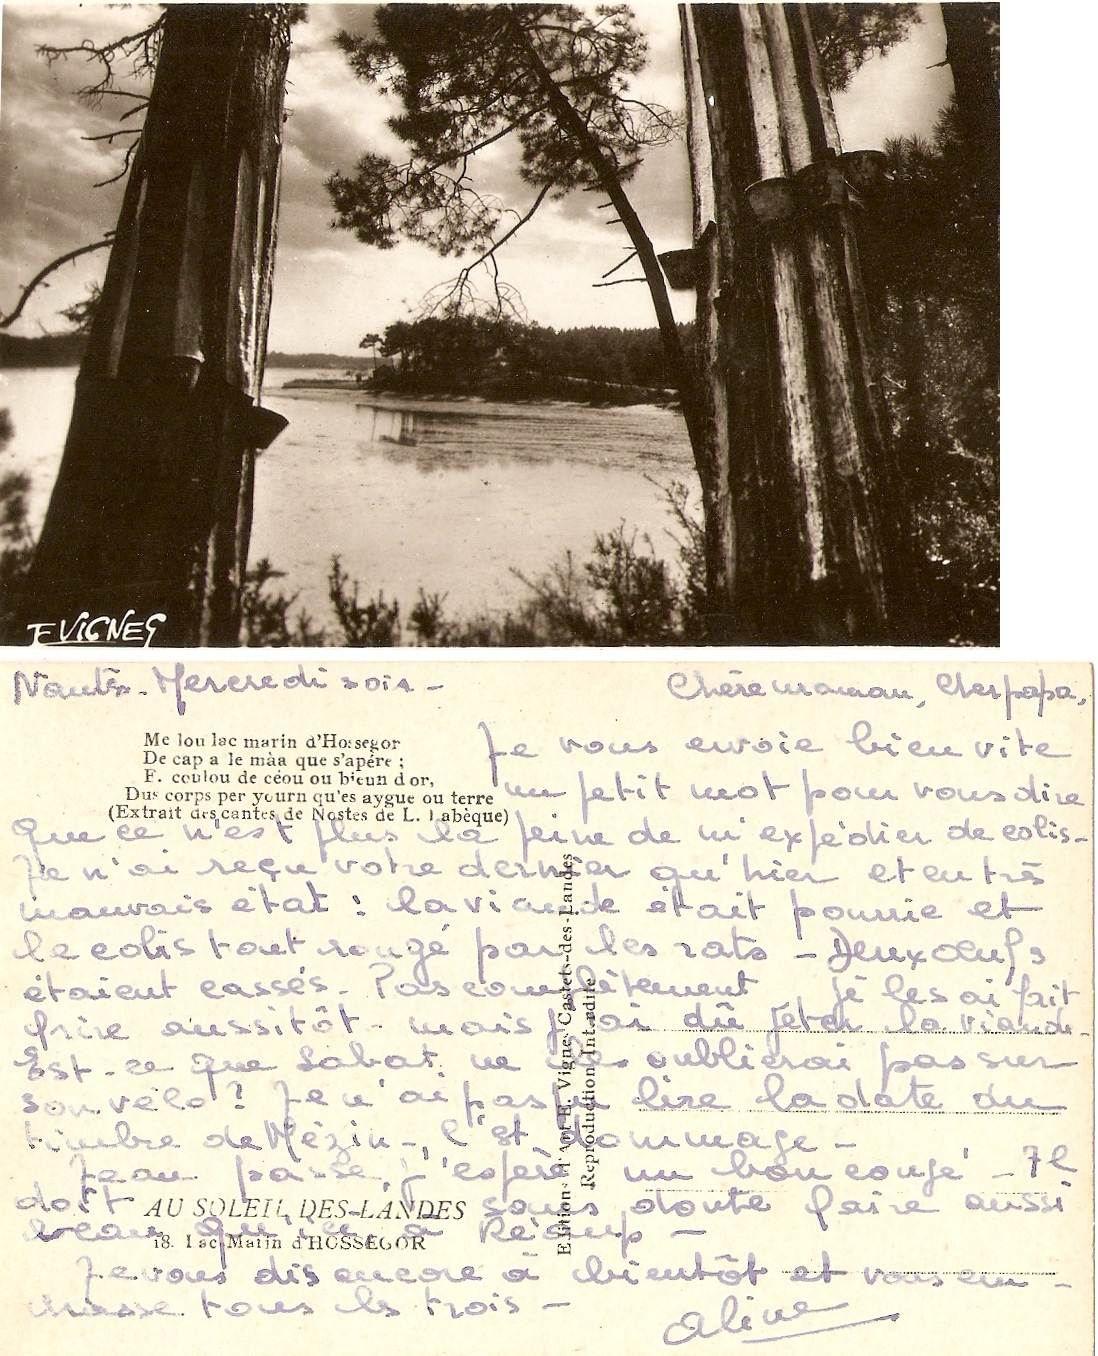 F VIGNES
Nantes - Mercredi soir -
Chère maman, Cher papa,
Me lou lac marin d'Hossegor
De cap a le màa que s'apére ;
E. coulou de céou ou bieun d or,
Dus corps per yourn qu'es aygue ou terre
(Extrait des cantes de Nostes de L. Labèque)
Je vous envoie bien vite
un petit mot pour vous dire
que ce n'est plus la peine de m'expédier de colis -
Je n'ai reçu votre dernier qu'hier et en très
mauvais état : la viande était pourrie et
le colis tout rongé par les rats - Deux œufs
étaient cassés - Pas complètement je les ai fait
frire aussitôt - mais j'ai dû jeter la viande -
Est-ce que Labat ne les oublierai pas sur
son vélo ? Je n'ai pas pu lire la date du
timbre de Mézin -, c'est dommage -
Jean passe, j'espère un bon congé - Il
doit sans doute faire aussi
beau qu'ici, à
AU SOLEIL DES-LANDES
18. Lac Marin d'HOSSEGOR
Je vous dis encore à bientôt et vous em -
brasse tous les trois -
Aline
Editions d'Art E. Vigne, Castets-des-Landes
Reproduction Interdite